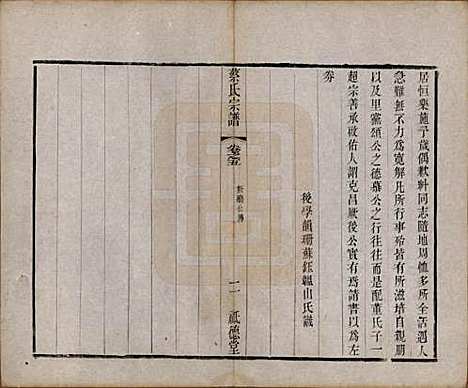 居恒樂施予歲偶歉糾同志隨地周恤多所全活遇人
急難無不力為寬解凡所行事殆皆有所滋培自親朋
以及里黨頌公之德慕公之行往往而是配董氏子一
超宗善承啟佑人謂克昌厥後公實有為請書以為左
券
後學韻珊蘇鈺
山氏識
蔡氏宗譜
卷五
公傳
二
德堂